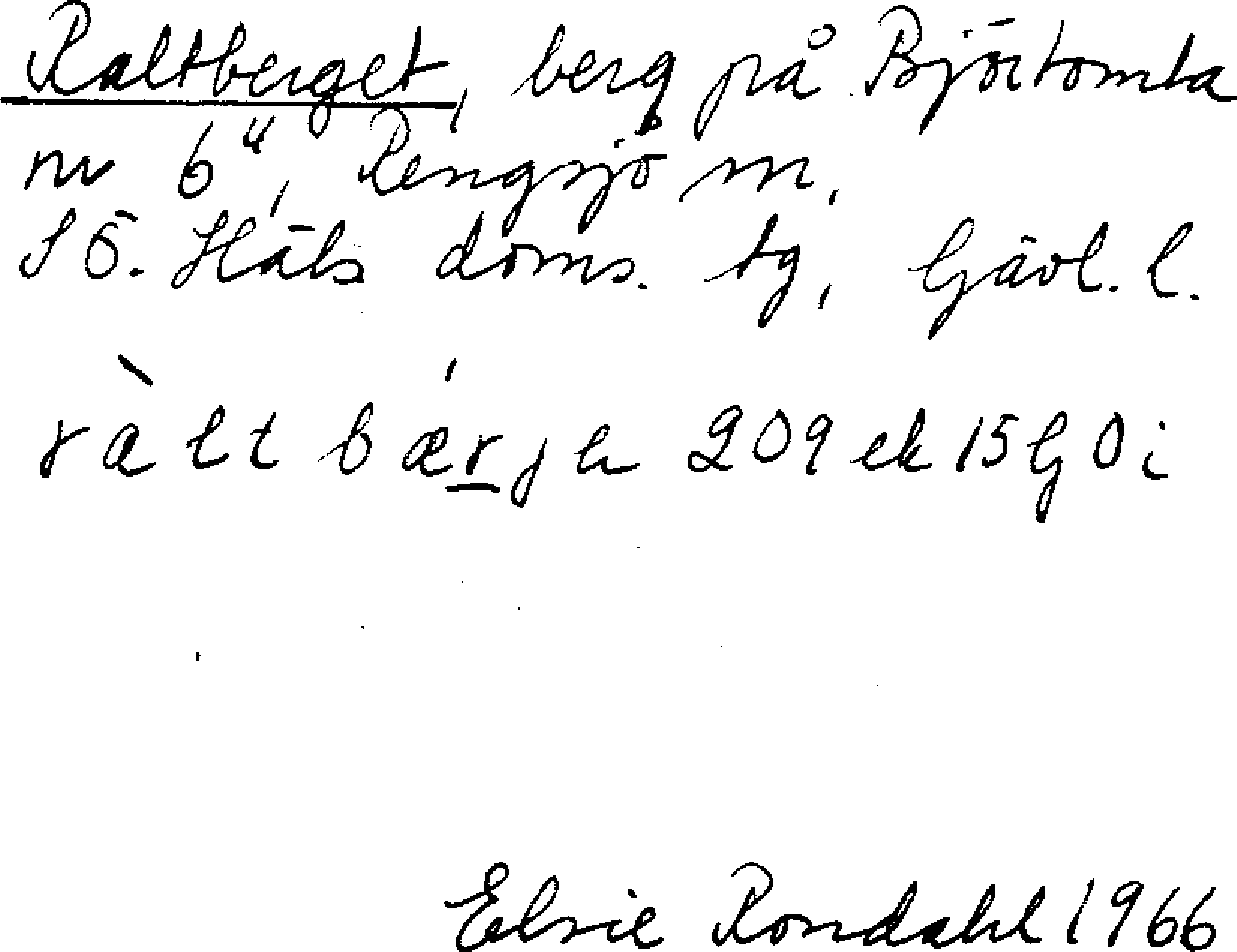 Raltberget, berg på Björtomta
nr 6⁴, Rengsjö sn,
SÖ. Häls doms. tg, Gävl. l.
ràlt bær̲je 209 ek 15 G 0 i
Elsie Rondahl 1966